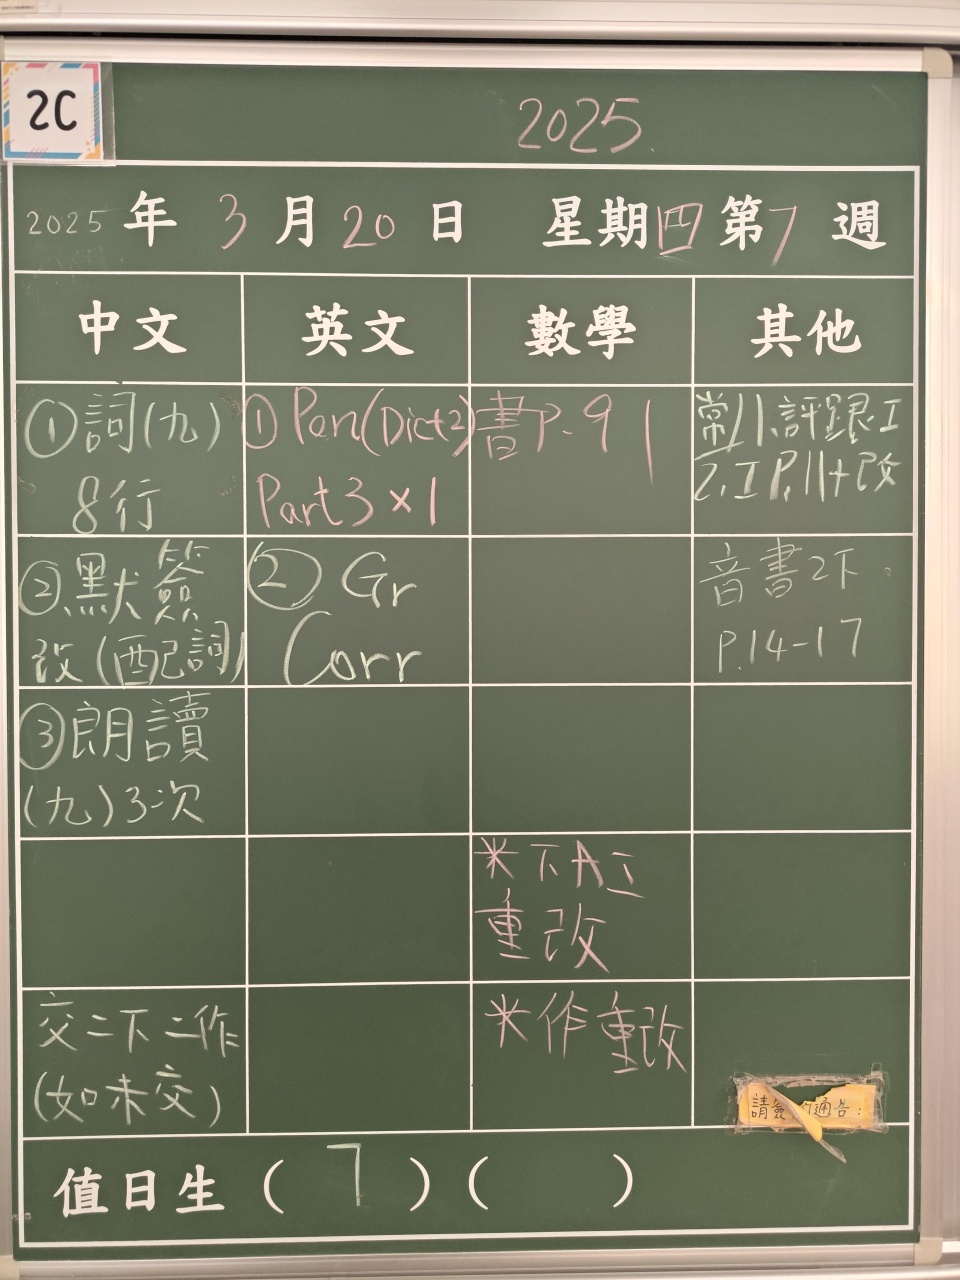 2C
2025.
2025 年 3 月 20 日 星期四 第 7 週
中文 英文 數學 其他
①詞(九)
8行
① Pen(Dict2)
Part 3 × 1
書P. 91
常八.評跟.工
乙.工P.11+改
②.默簽
改(配詞)
② Gr
Corr
音書2下.
P.14-17
③朗讀
(九)3次
*下A工
重改
交二下二作
(如未交)
*作重改
通告:
值日生 ( 7 ) ( )